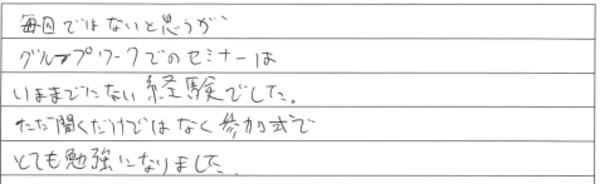 毎回ではないと思うが、
グループワークでのセミナーは
いままでにない経験でした。
ただ聞くだけではなく参加式で
とても勉強になりました。